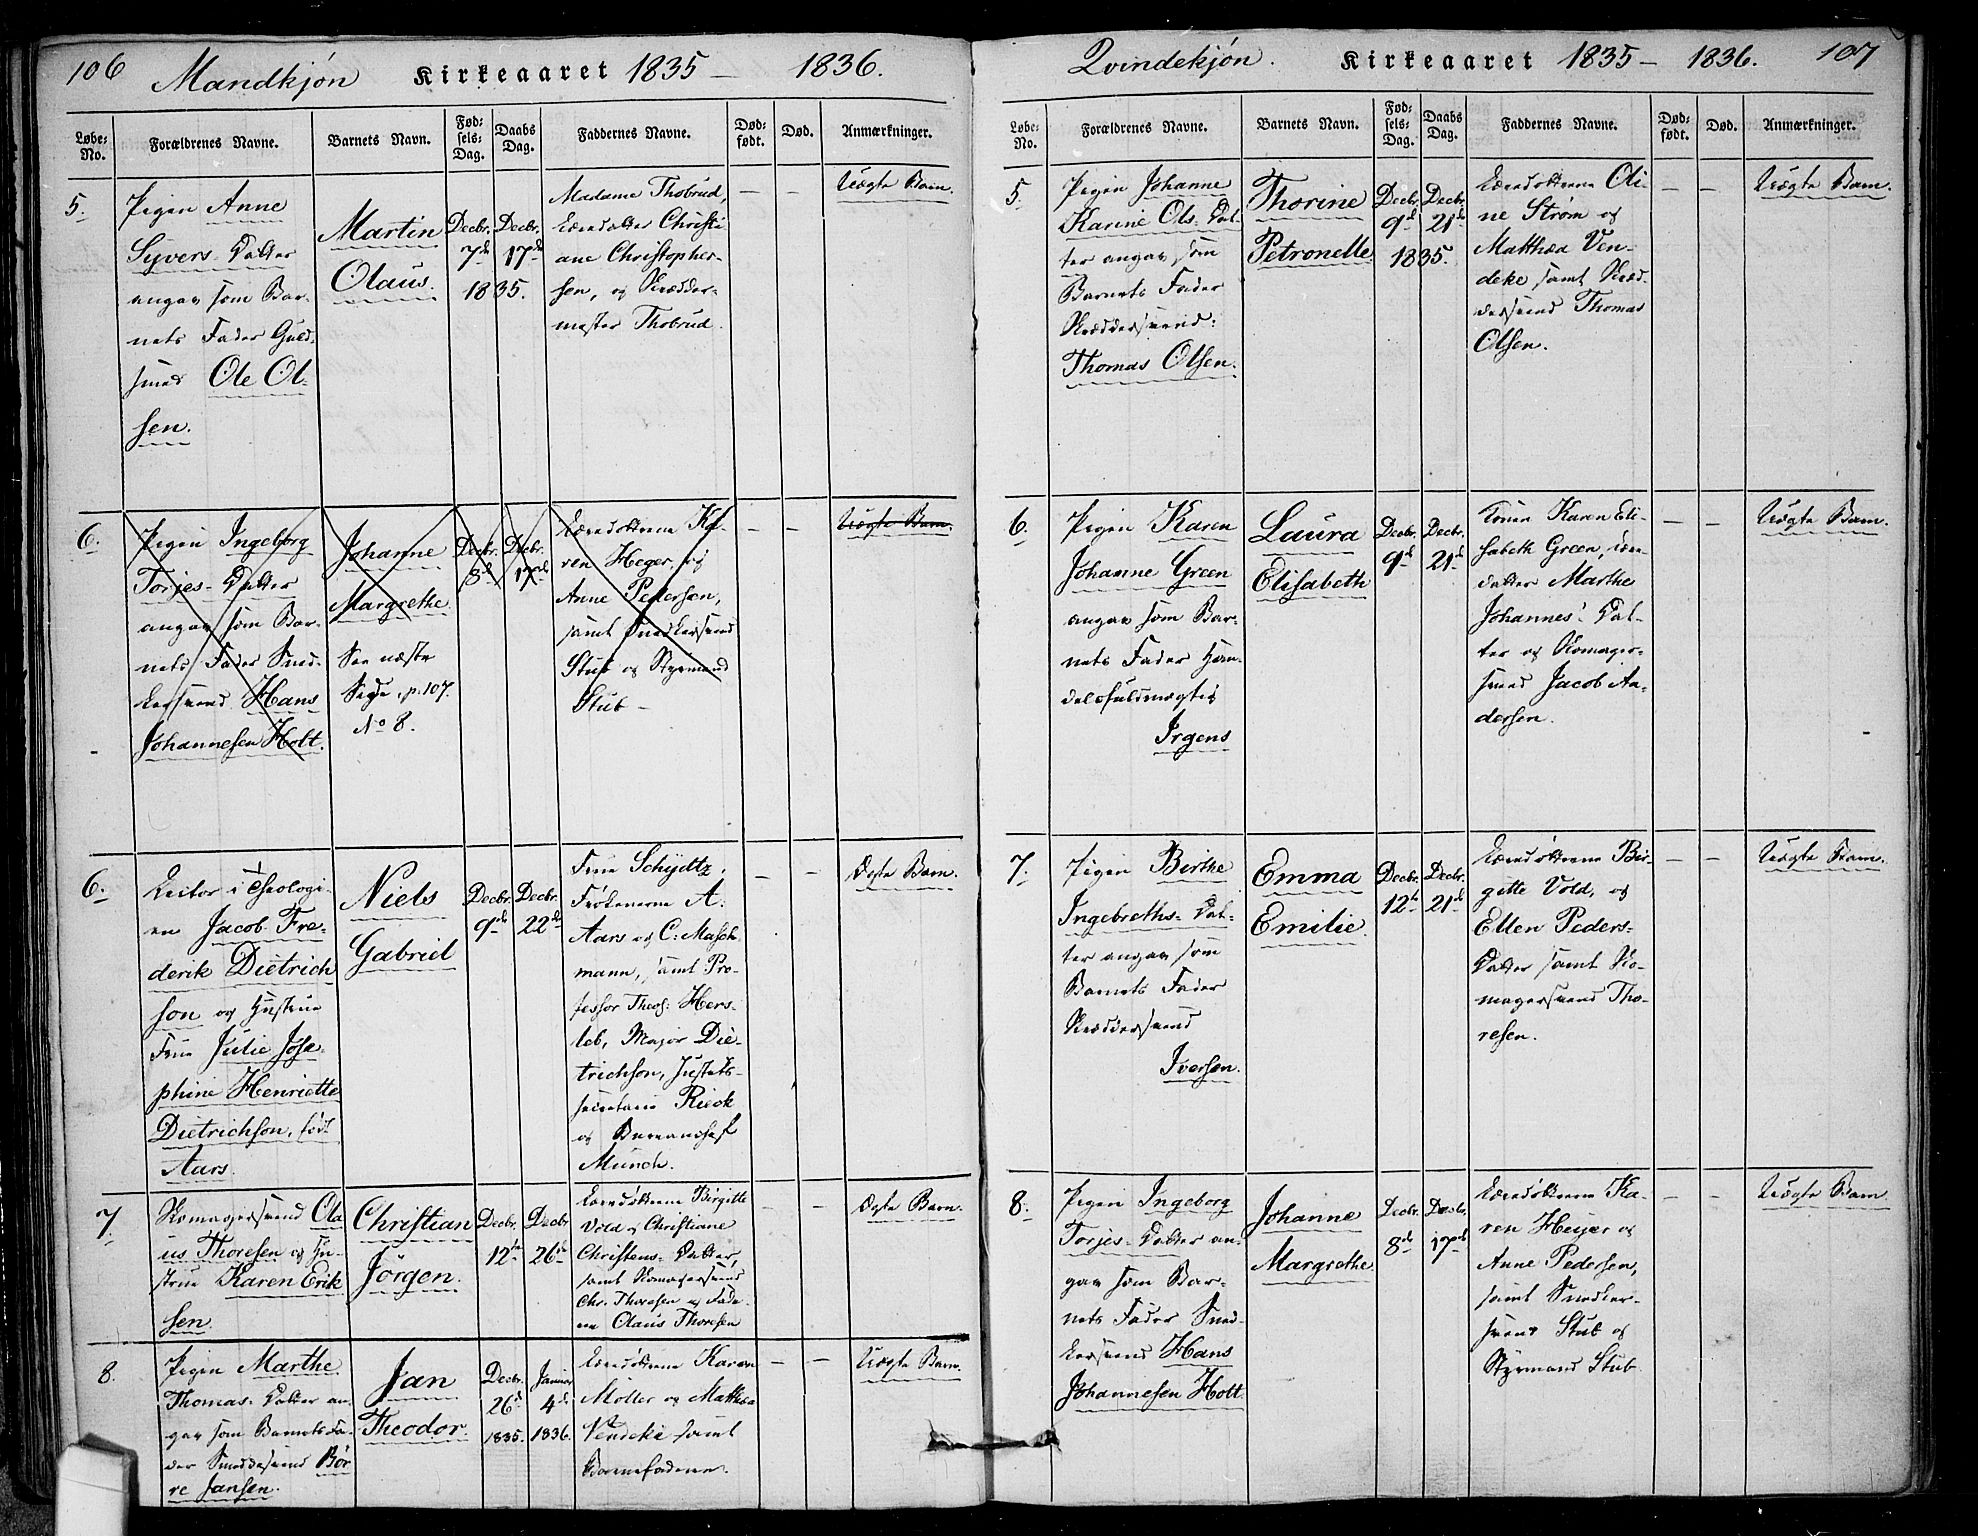 106 Mandkjøn Kirkeaaret 1835 – 1836.
Løbe-No. Forældrenes Navne. Barnets Navn. Fødsels-Dag. Daabs Dag. Faddernes Navne. Død-født. Død. Anmærkninger.
5.
Pigen Anne
Syvers Datter
angav som Bar-
nets Fader Guld-
smed Ole Ol-
sen.
Martin
Olaus.
Decbr. 7de
Decbr. 17de
1835.
Madame Thobrud,
Christi-
ane Christopher-
sen, og Skrædder-
mester Thobrud.
— —
Uægte Barn.
6.
Pigen Ingeborg
Torjes-Datter
angav som Bar-
nets Fader Sned-
kersvend Hans
Johannesen Holt.
Johanne
Margrethe
See næste
Side, p. 107.
No 8.
Decbr. 8de
Decbr. 17de
Ka-
ren Heger, og
Anne Pedersen,
samt Snedkersvend
Stub og Styrmand
Stub –
— —
Uægte Barn.
6.
Lector i Theologi-
en Jacob Fre-
derik Dietrich
son og Hustrue
Frue Julie Jose-
phine Henriette
Dietrichson, født
Aars.
Niels
Gabriel
Decbr. 9de
Decbr. 22de
Frue Schydtz,
Frøknerne A.
Aars og C. Masch
mann, samt Pro-
fessor Theol: Hers-
leb, Major Die-
trichson, Justits-
secretaire Rieck
og Bureauchef
Munch.
— —
Ægte Barn.
7.
Skomagersvend Ola
us Thoresen og Hu-
strue Karen Erik
sen.
Christian
Jörgen.
Decbr. 12te
Decbr. 26de
Birgitte
Vold og Christiane
Christens-Datter,
samt Skomagersvend
Chr. Thoresen og Fade-
ren Olaus Thoresen
— —
Ægte Barn.
8.
Pigen Marthe
Thomas-Datter an-
gav som Barnets Fa-
der Smeddesvend Bör
re Jansen.
Jan
Theodor.
Decbr. 26de 1835.
Januar 4de 1836.
Karen
Möller og Mathea
Vendeke samt
Barnefaderen.
— —
Uægte Barn.
Qvindekjøn. Kirkeaaret 1835 – 1836. 107
Løbe-No. Forældrenes Navne. Barnets Navn. Fødsels-Dag. Daabs Dag. Faddernes Navne. Død-født. Død. Anmærkninger.
5.
Pigen Johanne
Karine Ols. Dat-
ter angav som
Barnets Fader
Skræddersvend:
Thomas Olsen.
Thorine
Petronelle
Decbr. 9de
Decbr. 21de
1835.
Oli-
ne Strøm og
Matthea Ven-
deke samt Skræd-
dersvend Thomas
Olsen.
— —
Uægte Barn.
6.
Pigen Karen
Johanne Green
angav som Bar-
nets Fader Han-
delsfuldmægtig
Irgens
Laura
Elisabeth
Decbr. 9de
Decbr. 21de
Konen Karen Eli-
sabeth Green,
datter Marthe
Johannes' Dat-
ter og Skomager-
svend Jacob An-
dersen.
— —
Uægte Barn.
7.
Pigen Birthe
Ingebreths-Dat-
ter angav som
Barnets Fader
Skræddersvend
Iversen.
Emma
Emilie.
Decbr. 12te
Decbr. 21de
Bir-
gitte Vold, og
Ellen Peders-
Datter samt Sko-
magersvend Tho-
resen.
— —
Uægte Barn.
8.
Pigen Ingeborg
Torjes-Datter an-
gav som Bar-
nets Fader Sned-
kersvend Hans
Johannesen Holt
Johanne
Margrethe
Decbr. 8de
Decbr. 17de
Ka-
ren Heijer og
Anne Pedersen,
samt Snedker-
svend Stub og
Styrmand Stub
— —
Uægte Barn